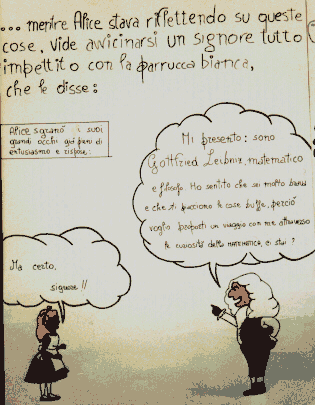 ... mentre Alice stava riflettendo su queste
cose, vide avvicinarsi un signore tutto
impettito con la parrucca bianca,
che le disse:
Mi presento: sono
Gottfried Leibniz, matematico
e filosofo. Ho sentito che sei molto brava
e che ti piacciono le cose buffe, perciò
voglio proporti un viaggio con me attraverso
le curiosità della MATEMATICA, ci stai?
Alice sgranò i suoi
grandi occhi già pieni di
entusiasmo e rispose:
Ma certo,
signore!!